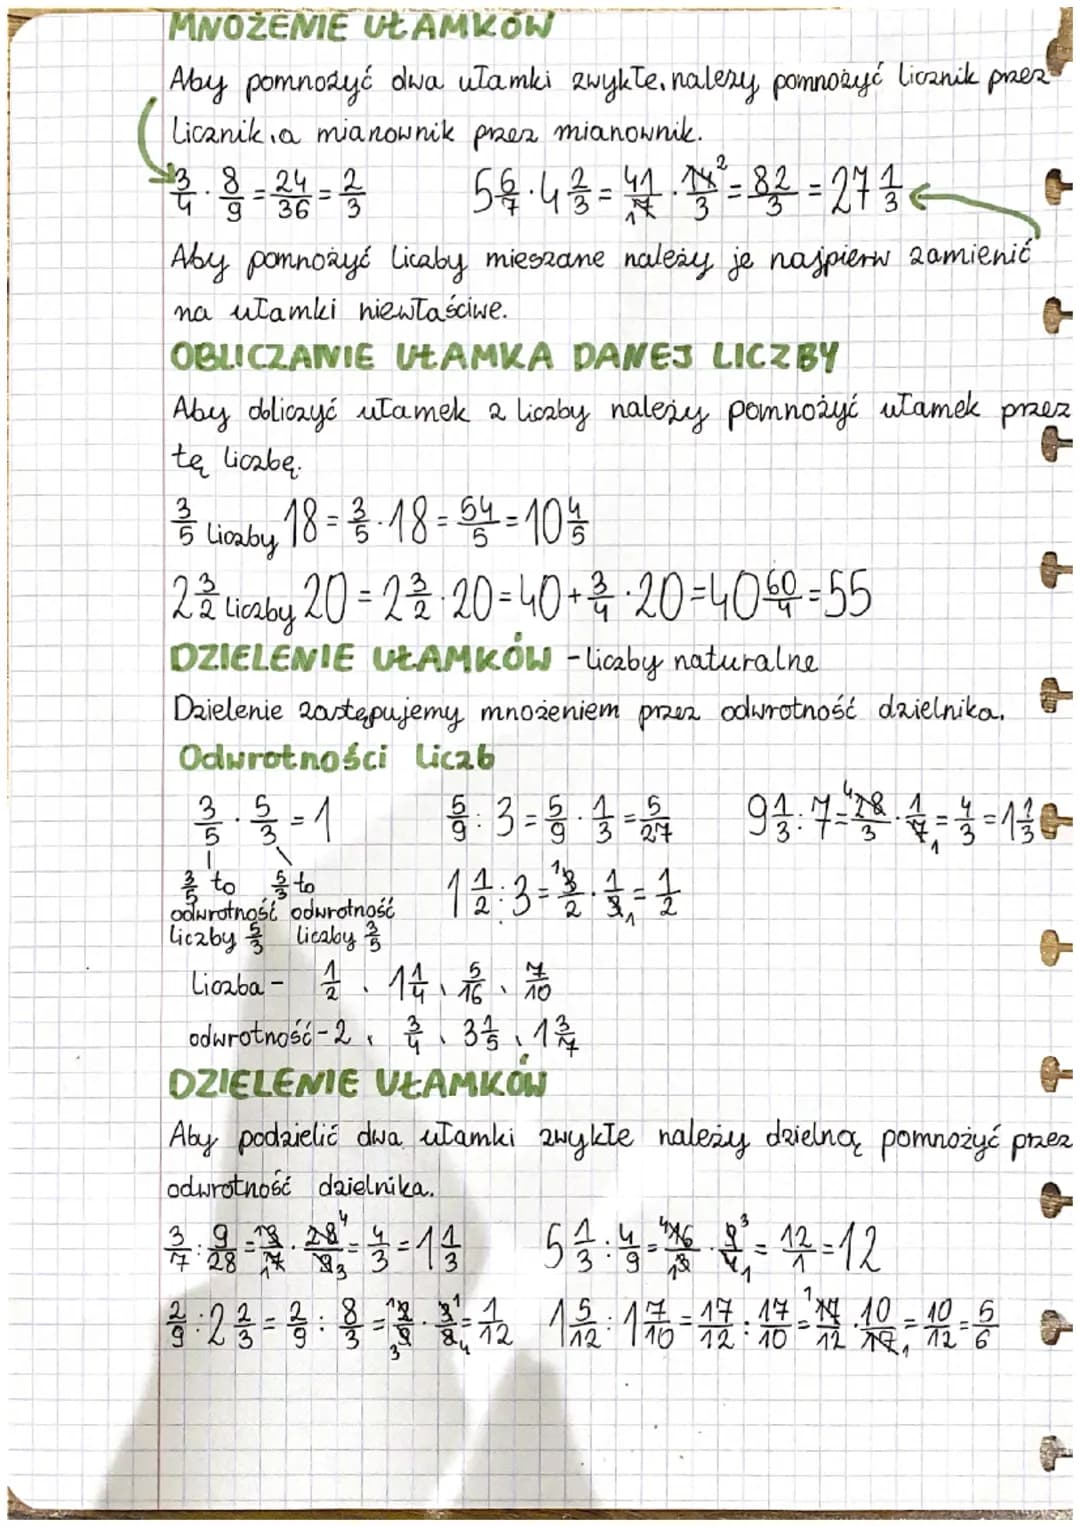 MNOŻENIE UŁAMKÓW
Aby pomnożyć dwa ułamki zwykłe, należy pomnożyć licznik przez
licznik, a mianownik przez mianownik.
3/4 · 8/9 = 24/36 = 2/3 5 6/7 · 4 2/3 = 41/7 1 · 14/3 2 = 82/3 = 27 1/3
Aby pomnożyć liczby mieszane należy je najpierw zamienić
na ułamki niewłaściwe.
OBLICZANIE UŁAMKA DANEJ LICZBY
Aby obliczyć ułamek z liczby należy pomnożyć ułamek przez
tę liczbę.
3/5 liczby 18 = 3/5 · 18 = 54/5 = 10 4/5
2 3/2 liczby 20 = 2 3/2 · 20 = 40 + 3/4 · 20 = 40 60/4 = 55
DZIELENIE UŁAMKÓW - liczby naturalne
Dzielenie zastępujemy mnożeniem przez odwrotność dzielnika.
Odwrotności liczb
3/5 · 5/3 = 1 5/9 : 3 = 5/9 · 1/3 = 5/27 9 1/3 : 7 = 4 28/3 · 1/7 1 = 4/3 = 1 1/3
3/5 to 5/3 to 1 1/2 : 3 = 1 3/2 · 1/3 1 = 1/2
odwrotność odwrotność
liczby 5/3 liczby 3/5
Liczba - 1/2, 1 1/4, 5/16, 7/10
odwrotność - 2, 3/4, 3 1/5, 1 3/7
DZIELENIE UŁAMKÓW
Aby podzielić dwa ułamki zwykłe należy dzielną pomnożyć przez
odwrotność dzielnika.
3/7 : 9/28 = 1 3/7 1 · 28 4/9 3 = 4/3 = 1 1/3 5 1/3 : 4/9 = 4 16/3 1 · 9 3/4 1 = 12/1 = 12
2/9 : 2 2/3 = 2/9 : 8/3 = 1 2/9 3 · 3 1/8 4 = 1/12 1 5/12 : 1 7/10 = 17/12 : 17/10 = 1 17/12 · 10/17 1 = 10/12 = 5/6